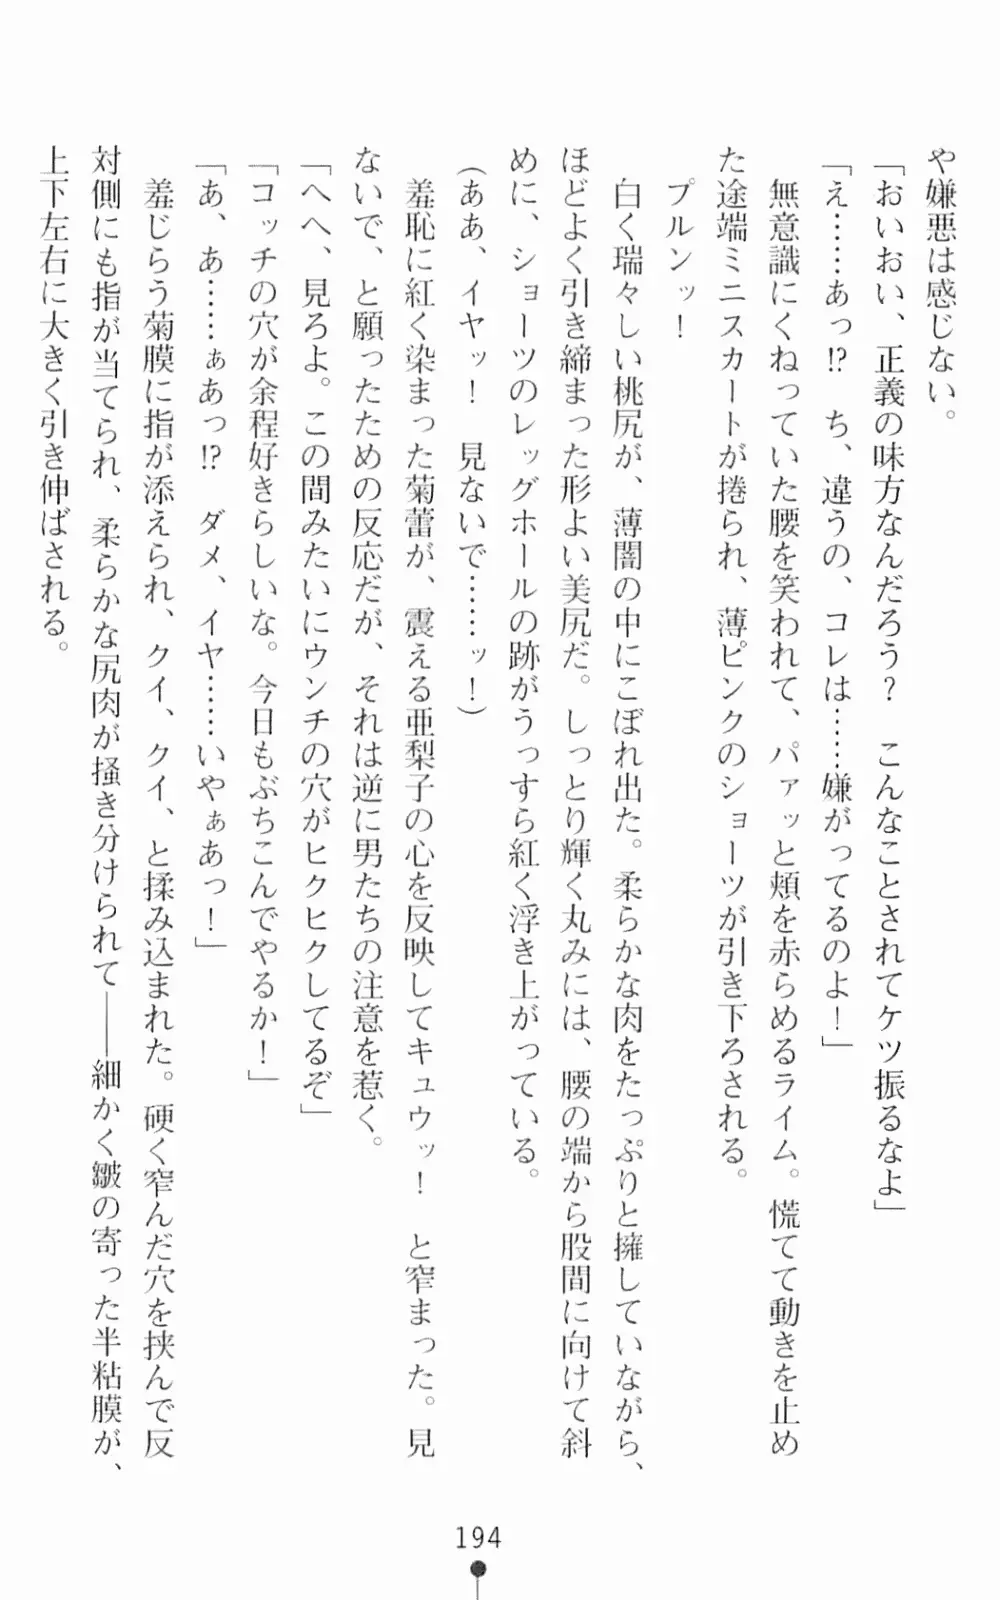 や嫌悪は感じない。
「おいおい、正義の味方なんだろう？　こんなことされてケツ振るなよ」
「え……あっ!?　ち、違うの、コレは……嫌がってるのよ！」
　無意識にくねっていた腰を笑われて、パァッと頬を赤らめるライム。慌てて動きを止め
た途端ミニスカートが捲られ、薄ピンクのショーツが引き下ろされる。
　プルンッ！
　白く瑞々しい桃尻が、薄闇の中にこぼれ出た。柔らかな肉をたっぷりと擁していながら、
ほどよく引き締まった形よい美尻だ。しっとり輝く丸みには、腰の端から股間に向けて斜
めに、ショーツのレッグホールの跡がうっすら紅く浮き上がっている。
（ああ、イヤッ！　見ないで……ッ！）
　羞恥に紅く染まった菊蕾が、震える亜梨子の心を反映してキュウッ！　と窄まった。見
ないで、と願ったための反応だが、それは逆に男たちの注意を惹く。
「へへ、見ろよ。この間みたいにウンチの穴がヒクヒクしてるぞ」
「コッチの穴が余程好きらしいな。今日もぶちこんでやるか！」
「あ、あ……ぁあっ!?　ダメ、イヤ……いやぁあっ！」
　羞じらう菊膜に指が添えられ、クイ、クイ、と揉み込まれた。硬く窄んだ穴を挟んで反
対側にも指が当てられ、柔らかな尻肉が掻き分けられて――細かく皺の寄った半粘膜が、
上下左右に大きく引き伸ばされる。
194